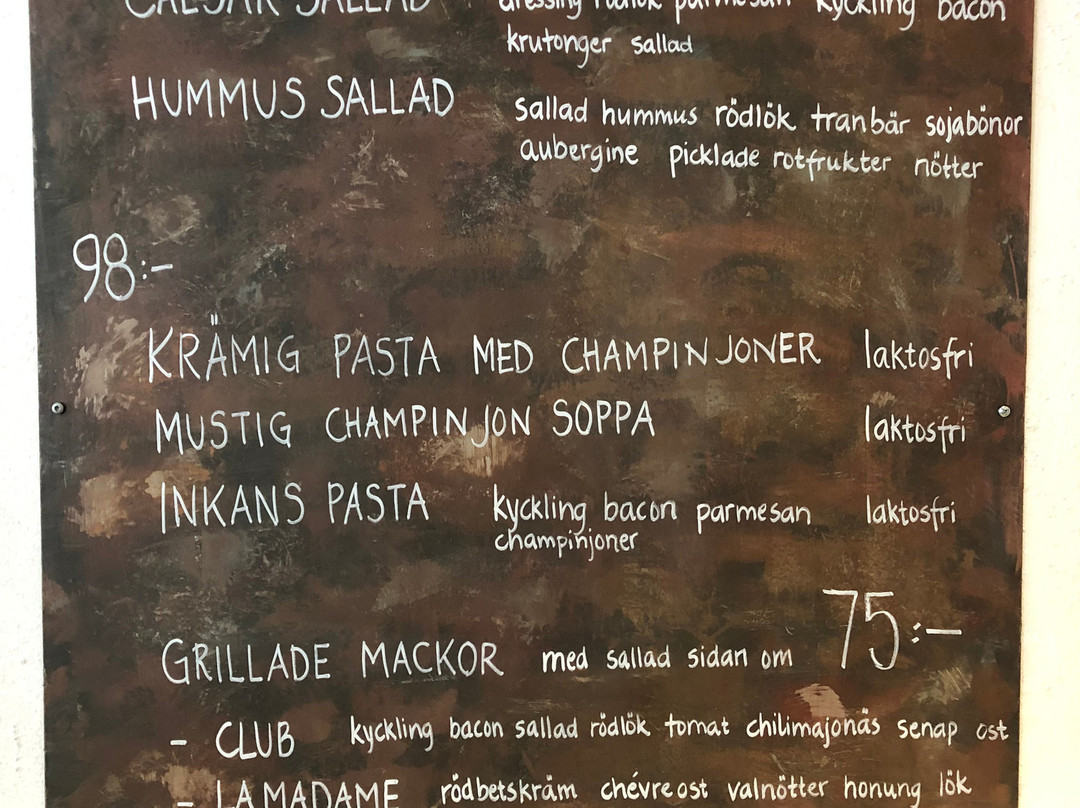 CAESAR SALLAD dressing rödlök parmesan kyckling bacon
krutonger sallad
HUMMUS SALLAD sallad hummus rödlök tranbär sojabönor
aubergine picklade rotfrukter nötter
98:-
KRÄMIG PASTA MED CHAMPINJONER laktosfri
MUSTIG CHAMPINJON SOPPA laktosfri
INKANS PASTA kyckling bacon parmesan laktosfri
champinjoner
GRILLADE MACKOR med sallad sidan om 75:-
- CLUB kyckling bacon sallad rödlök tomat chilimajonäs senap ost
- LA MADAME rödbetskräm chévreost valnötter honung lök